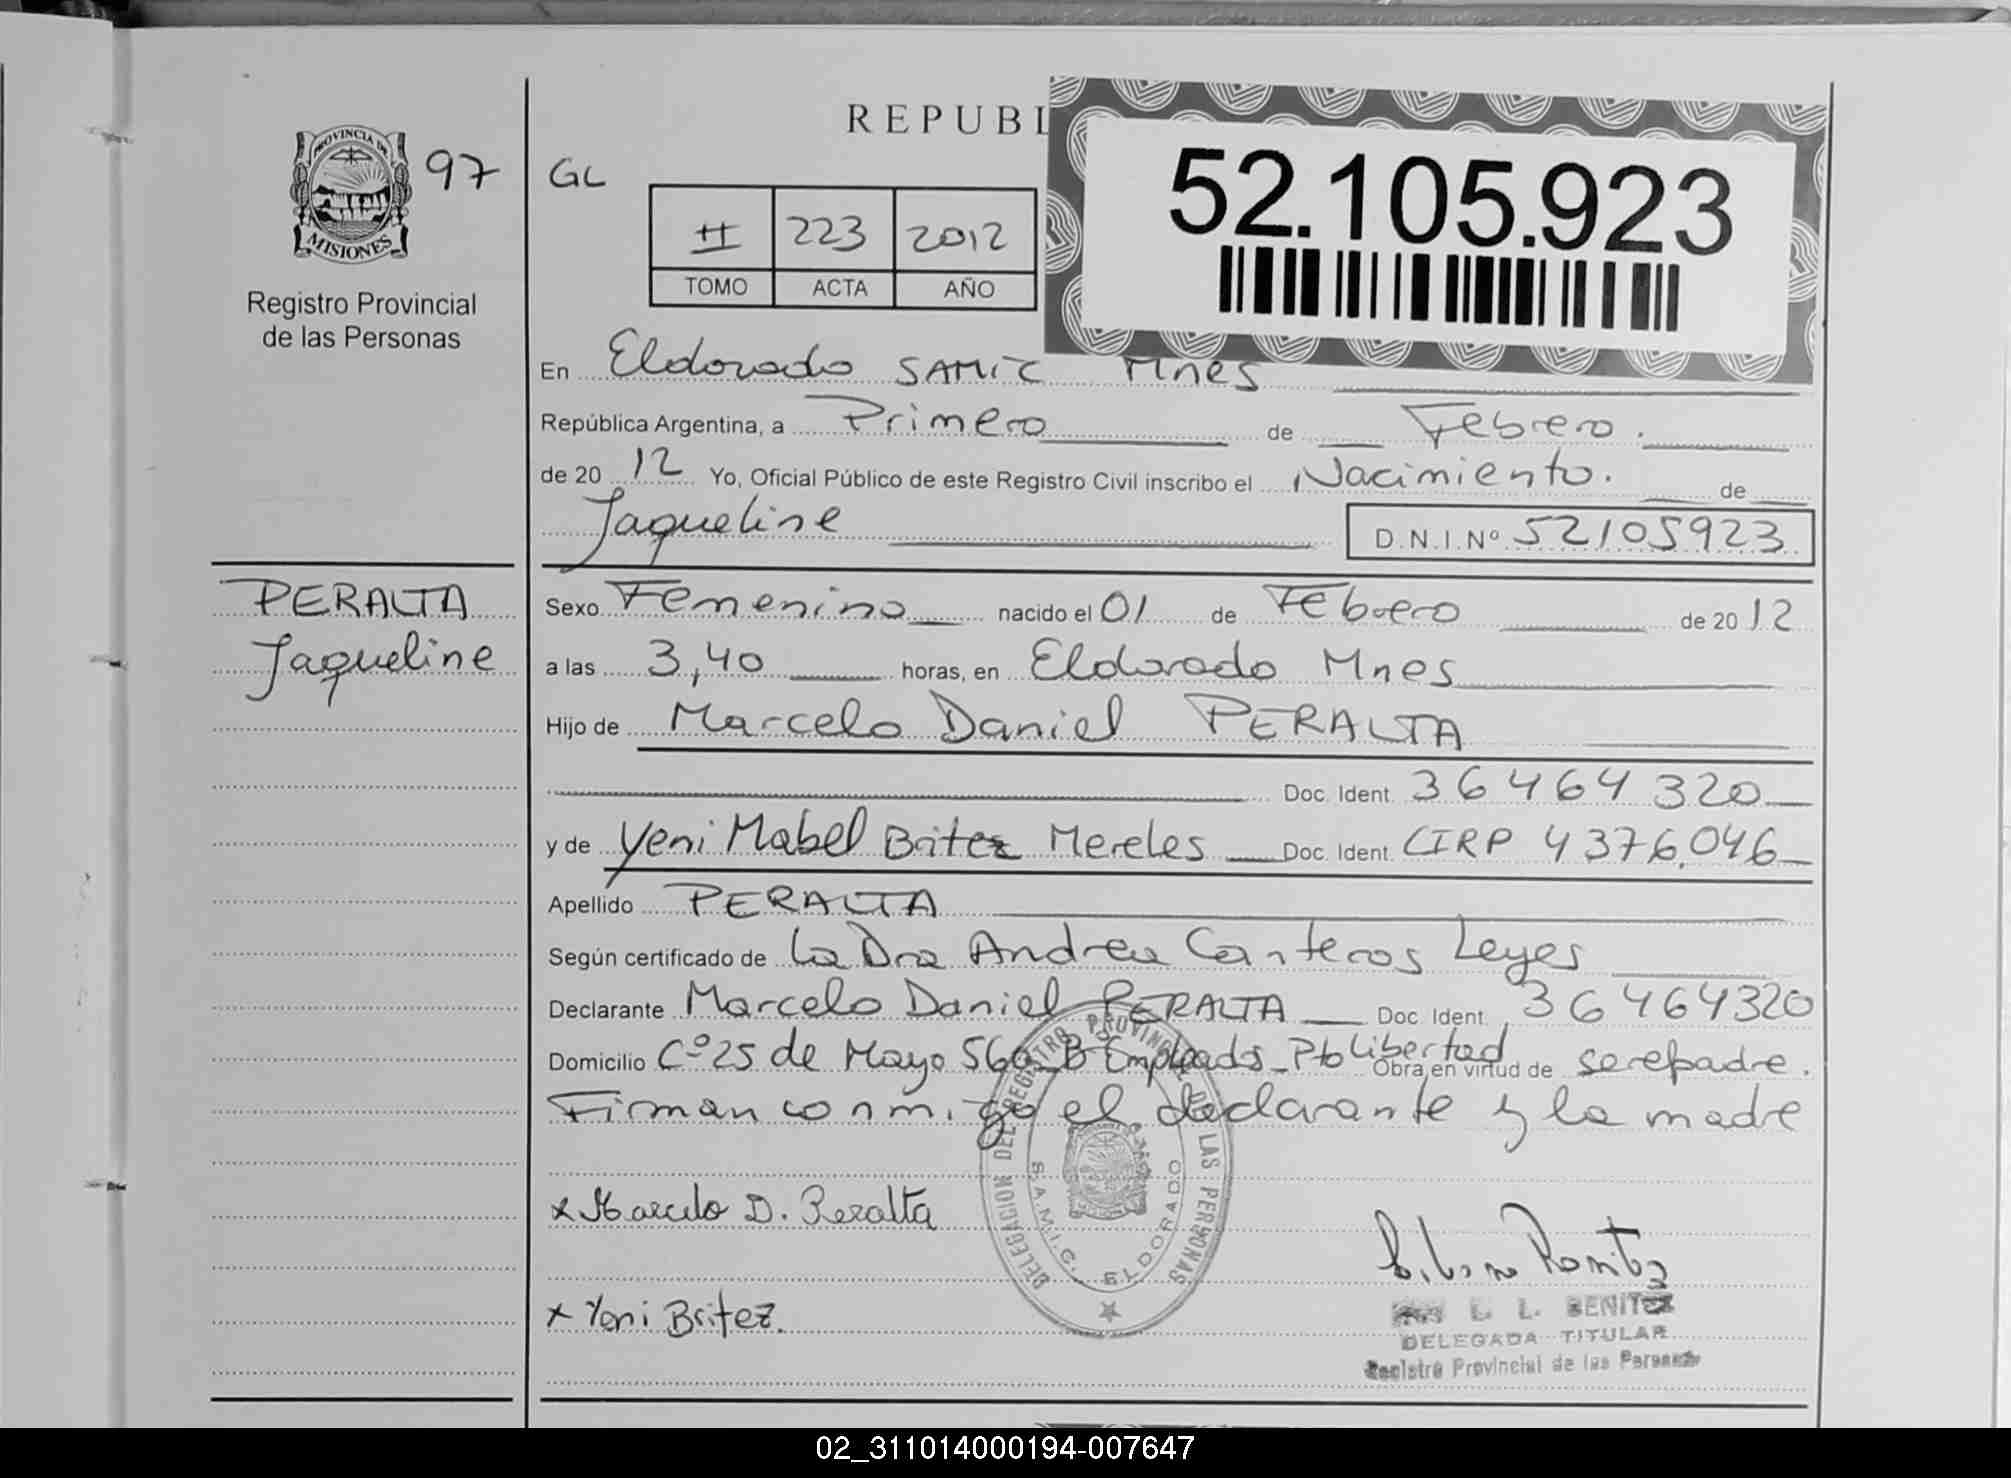 PROVINCIA DE
MISIONES
97
Registro Provincial
de las Personas
GL
REPUBL
52.105.923
II 223 2012
TOMO ACTA AÑO
En Eldorado SAMIC Mnes
República Argentina, a Primero de Febrero.
de 2012 Yo, Oficial Público de este Registro Civil inscribo el Nacimiento. de
Jaqueline D.N.I.Nº 52105923
PERALTA
Jaqueline
Sexo Femenino nacido el 01 de FEbrero de 2012
a las 3,40 horas, en Eldorado Mnes
Hijo de Marcelo Daniel PERALTA
Doc. Ident. 36464320
y de Yeni Mabel Britez Mereles Doc. Ident. CIRP 4376.046
Apellido PERALTA
Según certificado de La Dra Andrea Canteros Leyes
Declarante Marcelo Daniel PERALTA Doc. Ident. 36464320
Domicilio Cº 25 de Mayo 560 Bº Empleados - Pto Libertad Obra en virtud de ser el padre.
Firman conmigo el declarante y la madre
x Marcelo D. Peralta
x Yeni Britez.
DELEGACION DEL REGISTRO PROVINCIAL DE LAS PERSONAS
S.A.M.I.C. ELDORADO
L. L. BENITEZ
DELEGADA TITULAR
Registro Provincial de las Personas
02_311014000194-007647